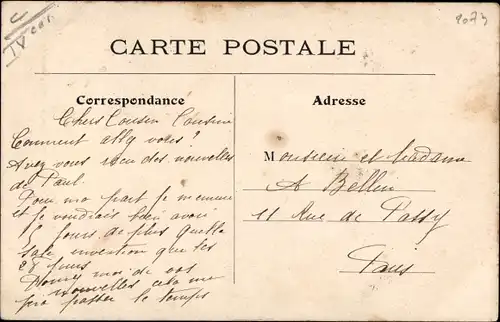 IV cor.
2073
CARTE POSTALE
Correspondance
Adresse
Chers Cousin Cousine
Comment allez vous?
Avez vous reçu des nouvelles
de Paul.
Pour ma part je m'ennuie
et je voudrais bien avoir
jours de plus quelle
sale invention que les
28 jours
Donnez moi de vos
nouvelles cela me
fera passer le temps
Monsieur et Madame
A Bellen
11 Rue de Passy
Paris